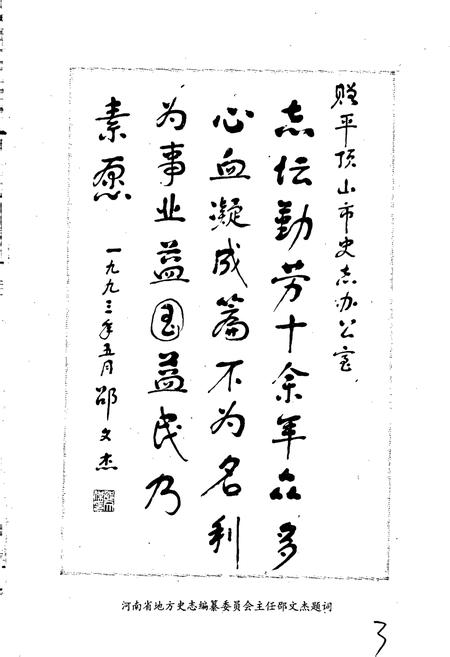 赠平顶山市史志办公室
志坛勤劳十余年众多
心血凝成篇不为名利
为事业益国益民乃
素愿
一九九三年五月 邵文杰
河南省地方史志编纂委员会主任邵文杰题词
3